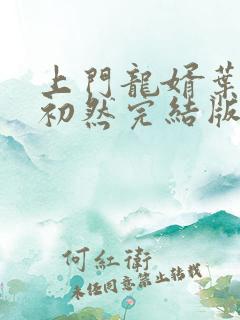 上門龍婿葉
初然完結版
何紅衛
未經同意禁止轉載